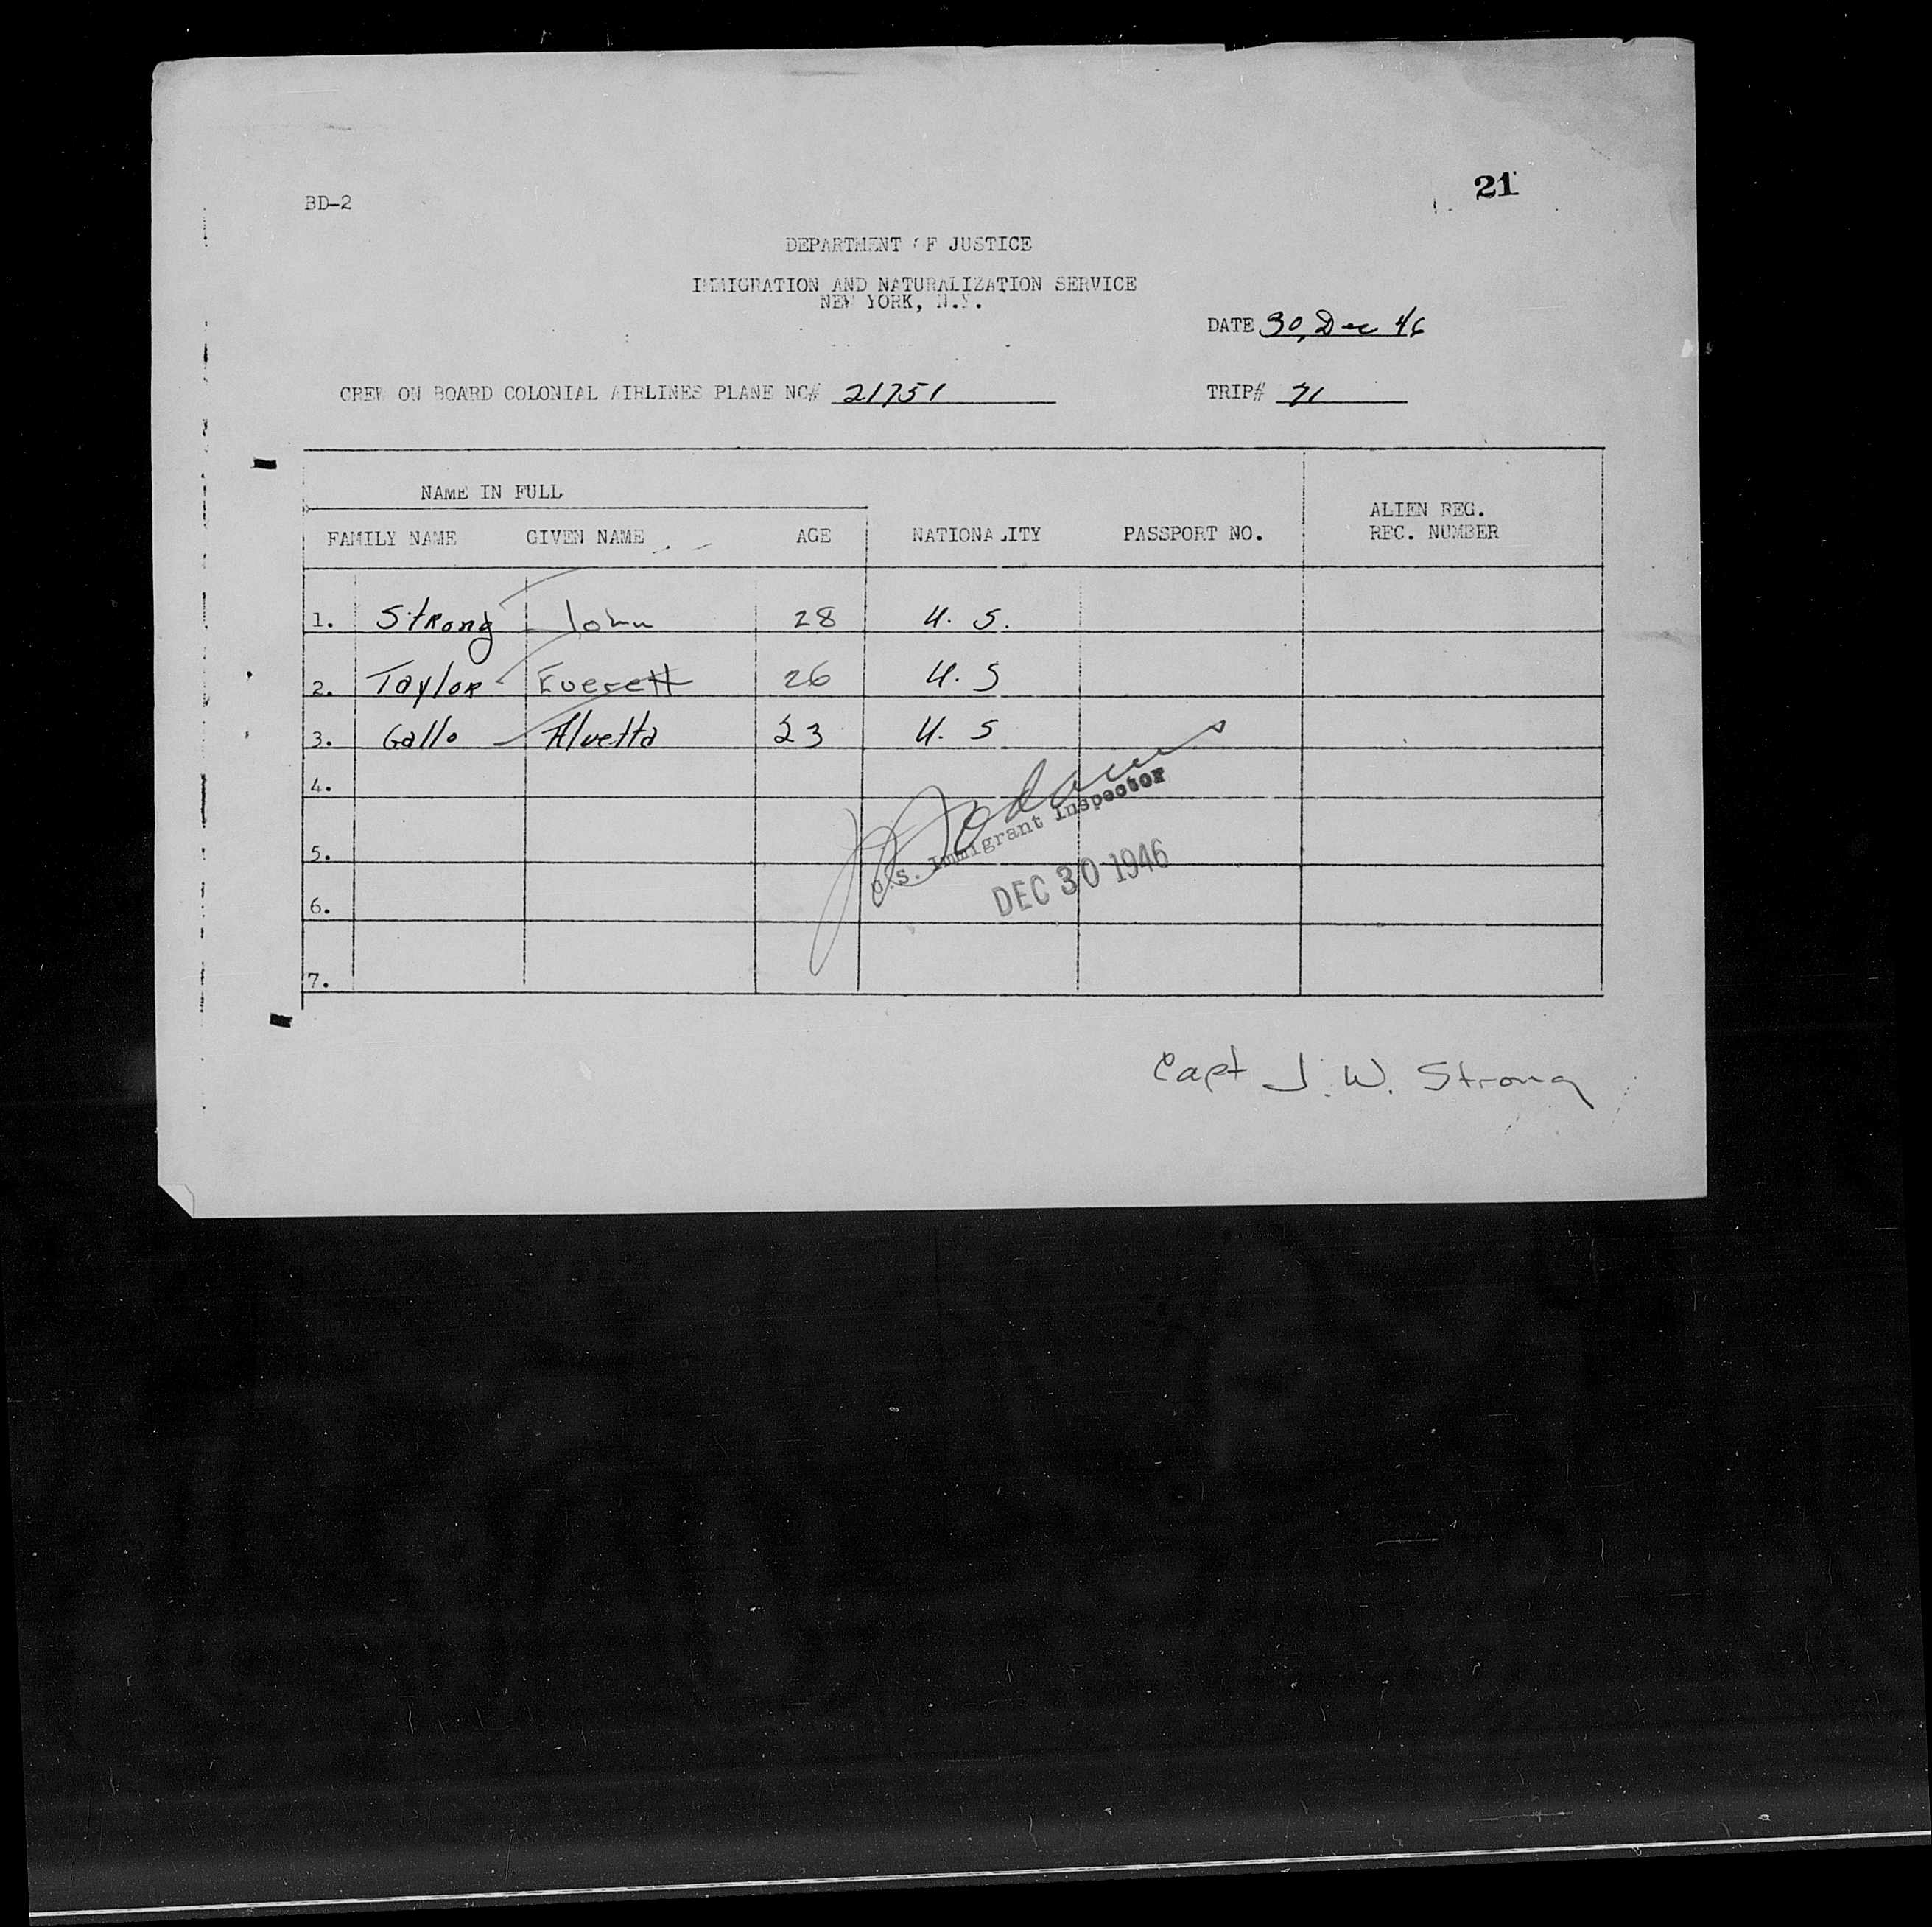 21
BD-2
DEPARTMENT OF JUSTICE
IMMIGRATION AND NATURALIZATION SERVICE
NEW YORK, N.Y.
DATE 30, Dec 46
CREW ON BOARD COLONIAL AIRLINES PLANE NC# 21751 TRIP# 71
NAME IN FULL
FAMILY NAME GIVEN NAME AGE NATIONALITY PASSPORT NO. ALIEN REG. REC. NUMBER
1. Strong John 28 U. S.
2. Taylor Everett 26 U. S
3. Gallo Alvetta 23 U. S
4.
U.S. Immigrant Inspector
5.
DEC 30 1946
6.
7.
Capt J. W. Strong